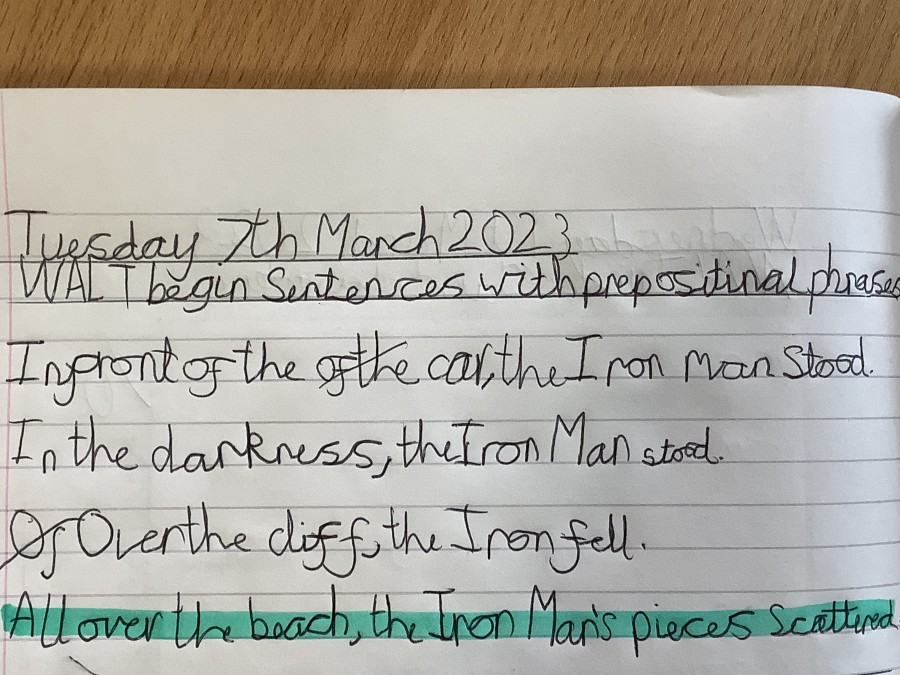 Tuesday 7th March 2023
WALT begin Sentences with prepositinal phrases
Infront of the of the car, the Iron Man Stood.
In the darkness, the Iron Man stood.
Of Over the cliff, the Iron fell.
All over the beach, the Iron Man's pieces Scattered